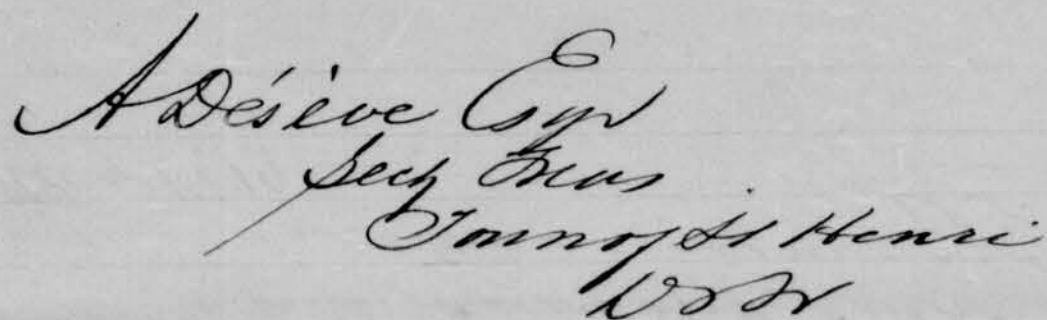 A Désève Esqr
Secy Treas
Town of St Henri